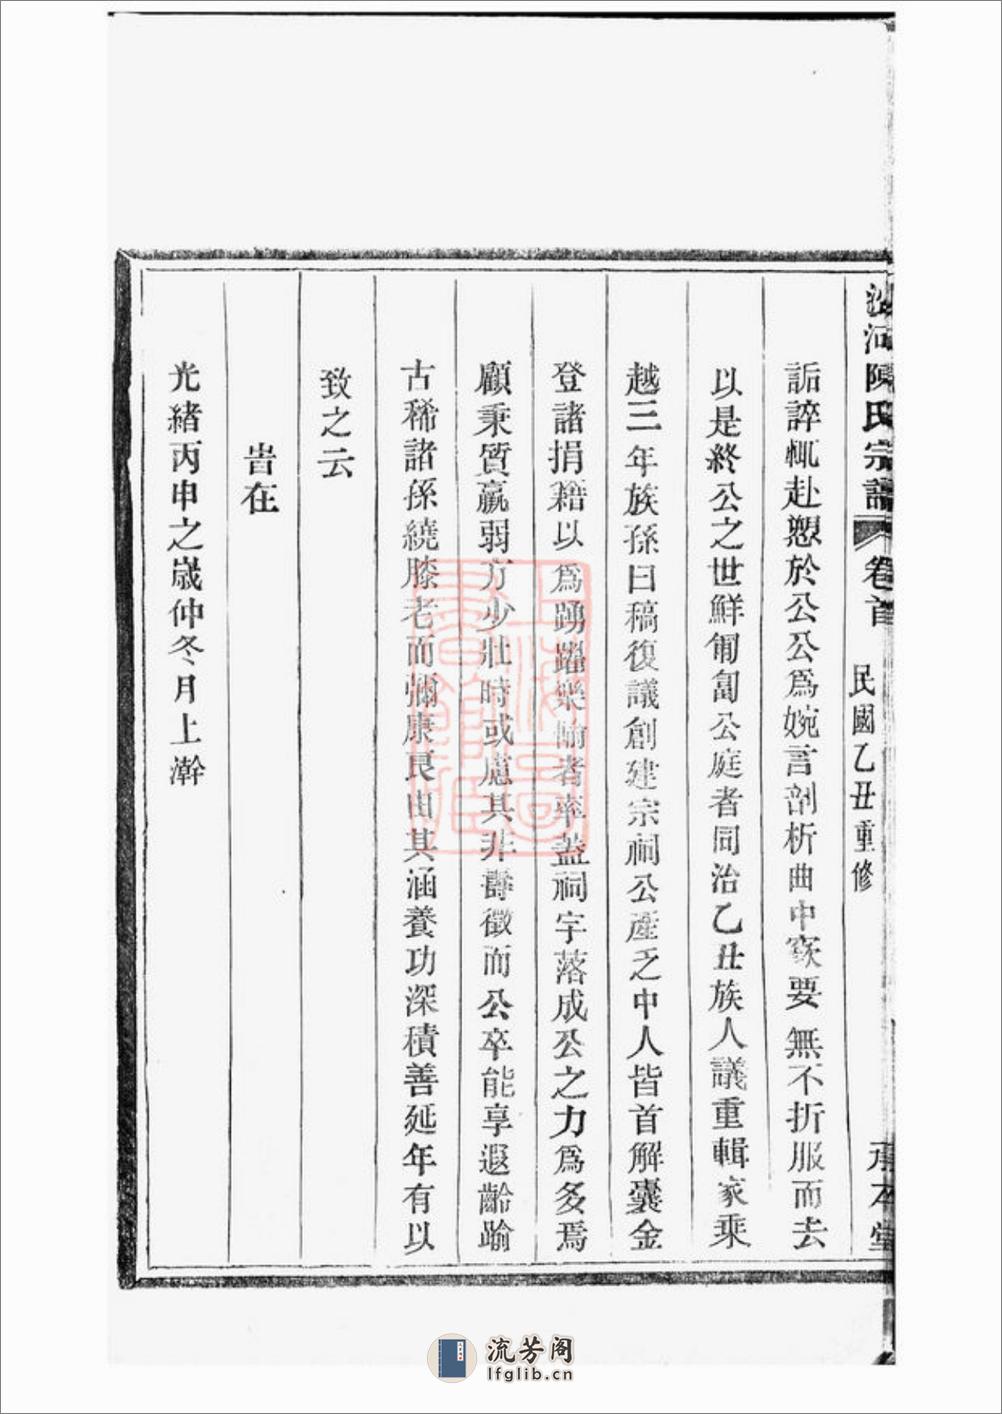 沙河陳氏宗譜 卷首 民國乙丑重修 承本堂
詬誶輒赴愬於公公爲婉言剖析曲中窾要無不折服而去
以是終公之世鮮匍匐公庭者同治乙丑族人議重輯家乘
越三年族孫曰稿復議創建宗祠公產之中人皆首解囊金
登諸捐籍以爲踴躍樂輸者率蓋祠宇落成公之力爲多焉
顧秉質羸弱方少壯時或慮其非壽徵而公卒能享遐齡踰
古稀諸孫繞膝老而彌康良由其涵養功深積善延年有以
致之云
旹在
光緒丙申之歲仲冬月上澣
上海圖書館藏
流芳阁
lfglib.cn